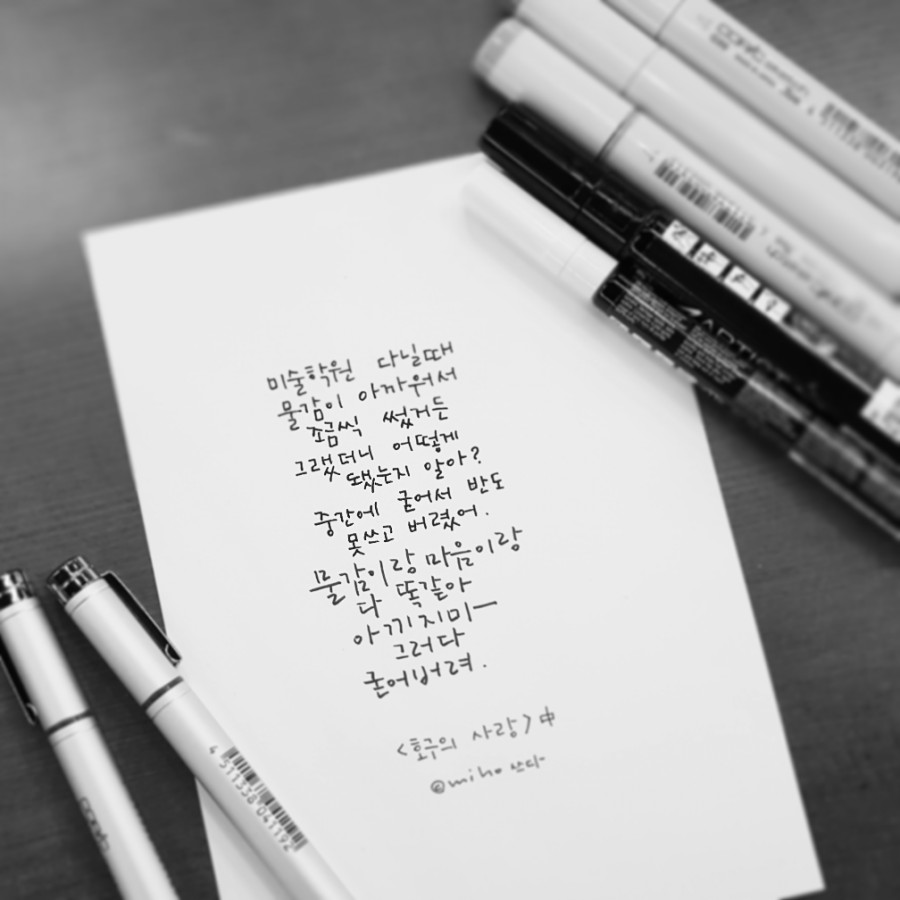 미술학원 다닐때
물감이 아까워서
조금씩 썼거든
그랬더니 어떻게
됐는지 알아?
중간에 굳어서 반도
못쓰고 버렸어.
물감이랑 마음이랑
다 똑같아
아끼지미ー
그러다
굳어버려.
<호구의 사랑> 中
@miho 쓰다-
copic
4 511338 041192
copic